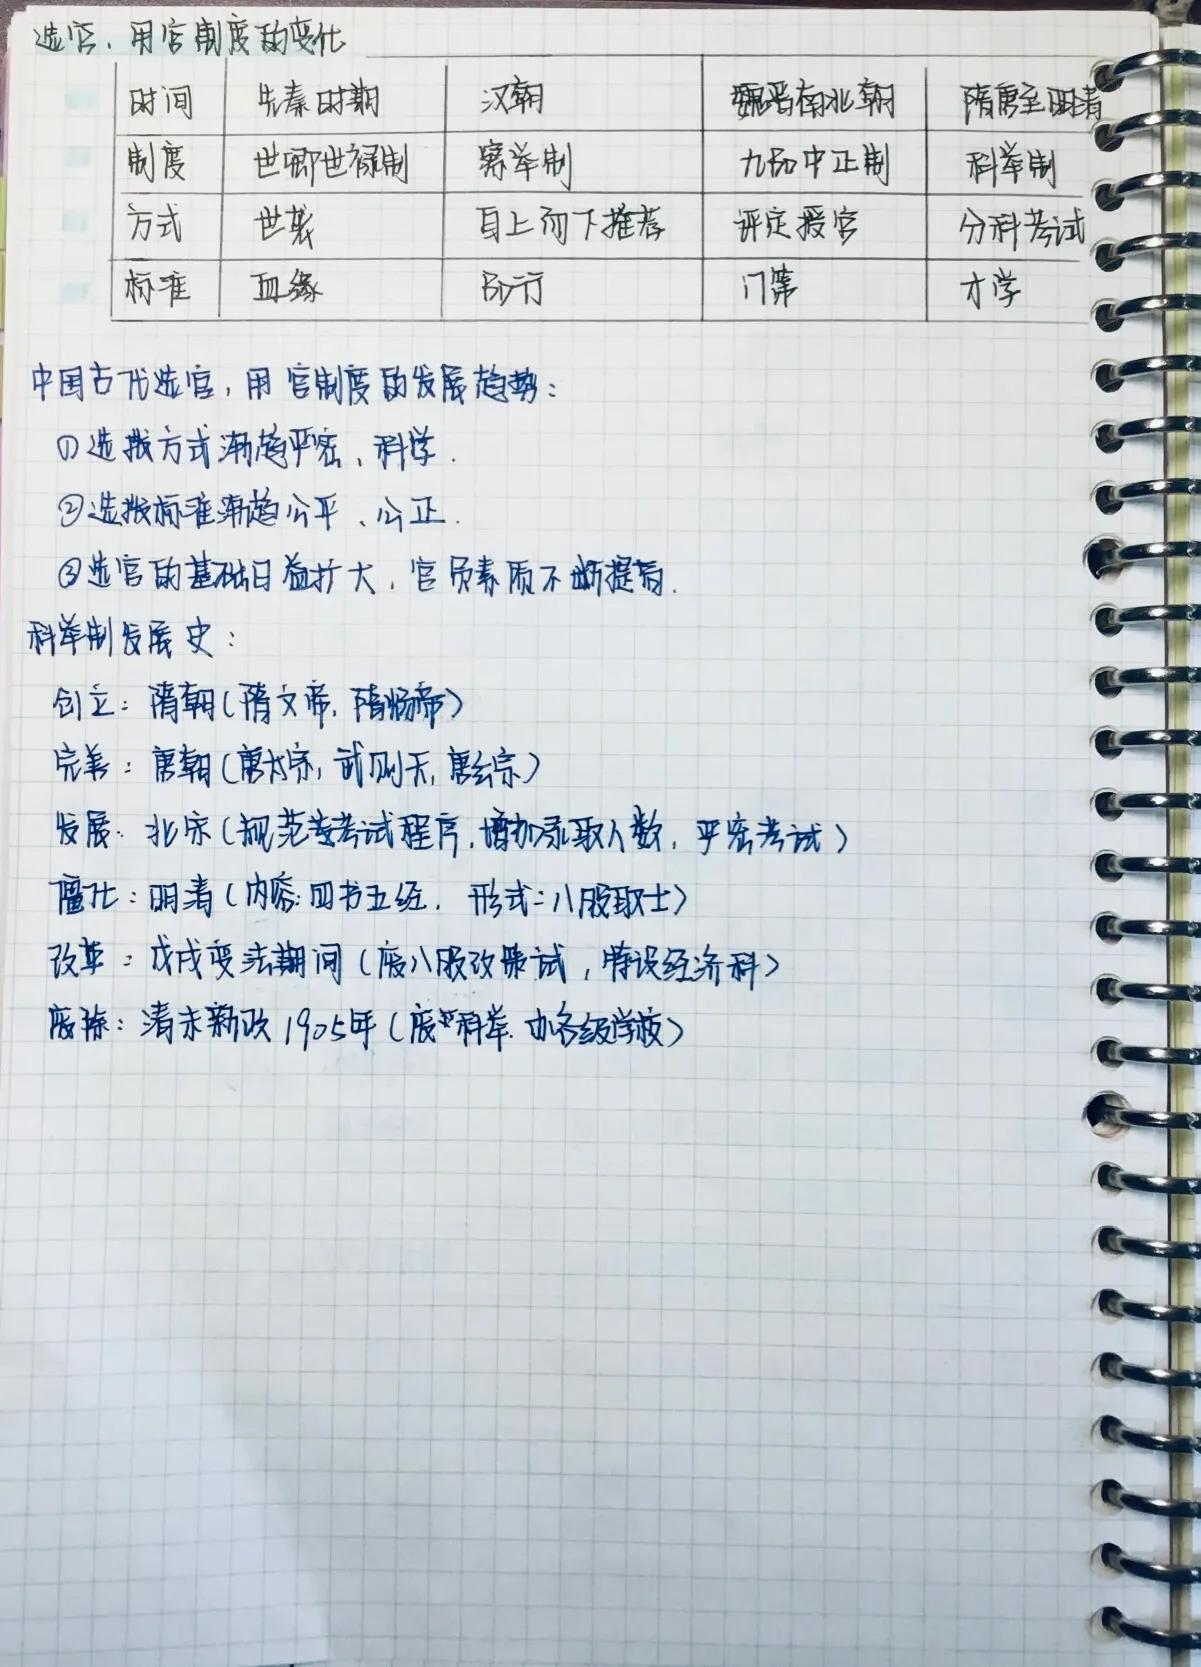 选官、用官制度的变化
时间 先秦时期 汉朝 魏晋南北朝 隋唐至明清
制度 世卿世禄制 察举制 九品中正制 科举制
方式 世袭 自上而下推荐 评定授官 分科考试
标准 血缘 品行 门第 才学
中国古代选官,用官制度的发展趋势:
①选拔方式渐趋严密、科学.
②选拔标准渐趋公平、公正.
③选官的基础日益扩大,官员素质不断提高.
科举制发展史:
创立:隋朝(隋文帝,隋炀帝)
完善:唐朝(唐太宗,武则天,唐玄宗)
发展:北宋(规范考试程序,增加录取人数,严密考试)
僵化:明清(内容:四书五经, 形式:八股取士)
改革:戊戌变法期间(废八股改策试,特设经济科)
废除:清末新政1905年(废科举.办各级学校)